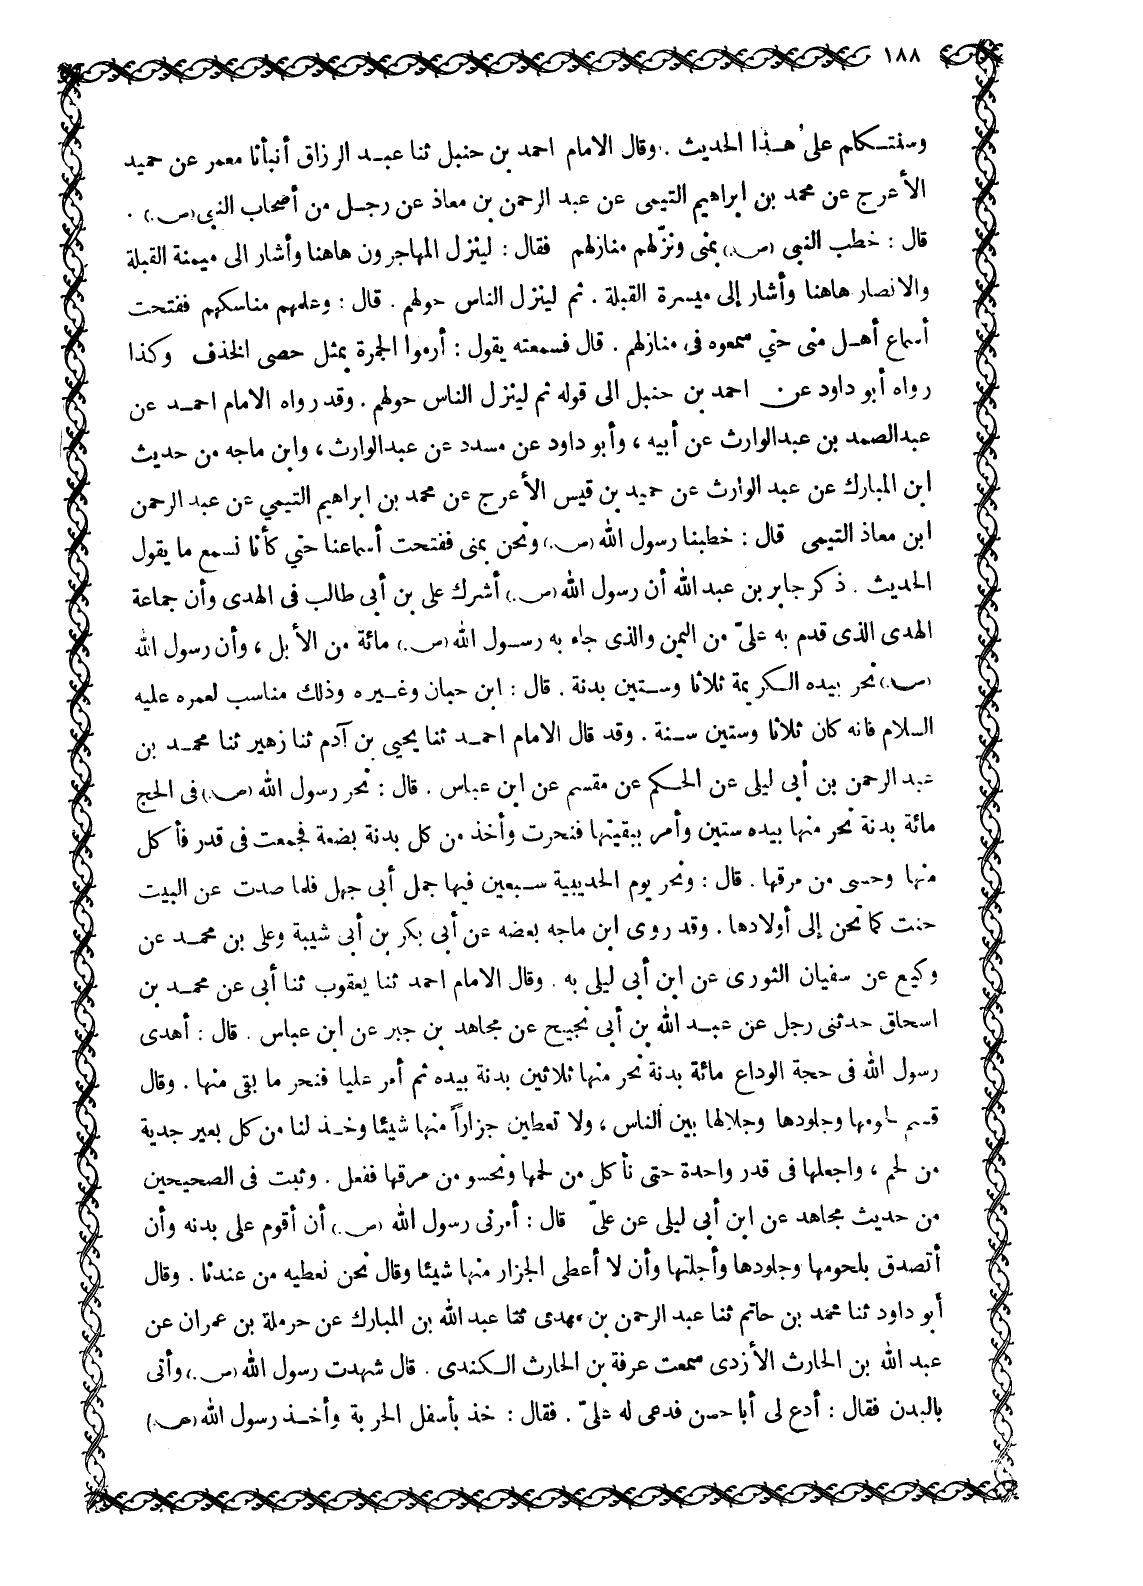 ١٨٨
وسنتكلم على هذا الحديث . وقال الامام احمد بن حنبل ثنا عبد الرزاق أنبأنا معمر عن حميد
الأعرج عن محمد بن ابراهيم التيمى عن عبد الرحمن بن معاذ عن رجل من أصحاب النبى (ص.) .
قال : خطب النبى (ص.) بمنى ونزّلهم منازلهم فقال : لينزل المهاجرون هاهنا وأشار الى ميمنة القبلة
والانصار هاهنا وأشار إلى ميسرة القبلة . ثم لينزل الناس حولهم . قال : وعلمهم مناسكهم ففتحت
أسماع أهل منى حتي سمعوه فى منازلهم . قال فسمعته يقول : أرموا الجمرة بمثل حصى الخذف وكذا
رواه أبو داود عن احمد بن حنبل الى قوله ثم لينزل الناس حولهم . وقد رواه الامام احمد عن
عبدالصمد بن عبدالوارث عن أبيه ، وأبو داود عن مسدد عن عبدالوارث ، وابن ماجه من حديث
ابن المبارك عن عبد الوارث عن حميد بن قيس الأعرج عن محمد بن ابراهيم التيمي عن عبد الرحمن
ابن معاذ التيمى قال : خطبنا رسول الله (ص.) ونحن بمنى ففتحت أسماعنا حتي كأنا نسمع ما يقول
الحديث . ذكر جابر بن عبد الله أن رسول الله (ص.) أشرك على بن أبى طالب فى الهدى وأن جماعة
الهدى الذى قدم به علىّ من اليمن والذى جاء به رسول الله (ص.) مائة من الأبل ، وأن رسول الله
(ص.) نحر بيده الكريمة ثلاثا وستين بدنة . قال : ابن حبان وغيره وذلك مناسب لعمره عليه
السلام فانه كان ثلاثا وستين سنة . وقد قال الامام احمد ثنا يحيى بن آدم ثنا زهير ثنا محمد بن
عبد الرحمن بن أبى ليلى عن الحكم عن مقسم عن ابن عباس . قال : نحر رسول الله (ص.) فى الحج
مائة بدنة نحر منها بيده ستين وأمر ببقيتها فنحرت وأخذ من كل بدنة بضعة فجمعت فى قدر فأكل
منها وحسى من مرقها . قال : ونحر يوم الحديبية سبعين فيها جمل أبى جهل فلما صدت عن البيت
حنت كما تحن إلى أولادها . وقد روى ابن ماجه بعضه عن أبى بكر بن أبى شيبة وعلى بن محمد عن
وكيع عن سفيان الثورى عن ابن أبى ليلى به . وقال الامام احمد ثنا يعقوب ثنا أبى عن محمد بن
اسحاق حدثنى رجل عن عبد الله بن أبى نجيح عن مجاهد بن جبر عن ابن عباس . قال : أهدى
رسول الله فى حجة الوداع مائة بدنة نحر منها ثلاثين بدنة بيده ثم أمر عليا فنحر ما بقى منها . وقال
قسم لحومها وجلودها وجلالها بين الناس ، ولا تعطين جزاراً منها شيئا وخذ لنا من كل بعير جدية
من لحم ، واجعلها فى قدر واحدة حتى نأكل من لحمها ونحسو من مرقها ففعل . وثبت فى الصحيحين
من حديث مجاهد عن ابن أبى ليلى عن علىّ قال : أمرنى رسول الله (ص.) أن أقوم على بدنه وأن
أتصدق بلحومها وجلودها وأجلتها وأن لا أعطى الجزار منها شيئا وقال نحن نعطيه من عندنا . وقال
أبو داود ثنا محمد بن حاتم ثنا عبد الرحمن بن مهدى ثنا عبد الله بن المبارك عن حرملة بن عمران عن
عبد الله بن الحارث الأزدى سمعت عرفة بن الحارث الكندى . قال شهدت رسول الله (ص.) وأتى
بالبدن فقال : أدع لى أبا حسن فدعى له علىّ . فقال : خذ بأسفل الحربة وأخذ رسول الله (ص.)